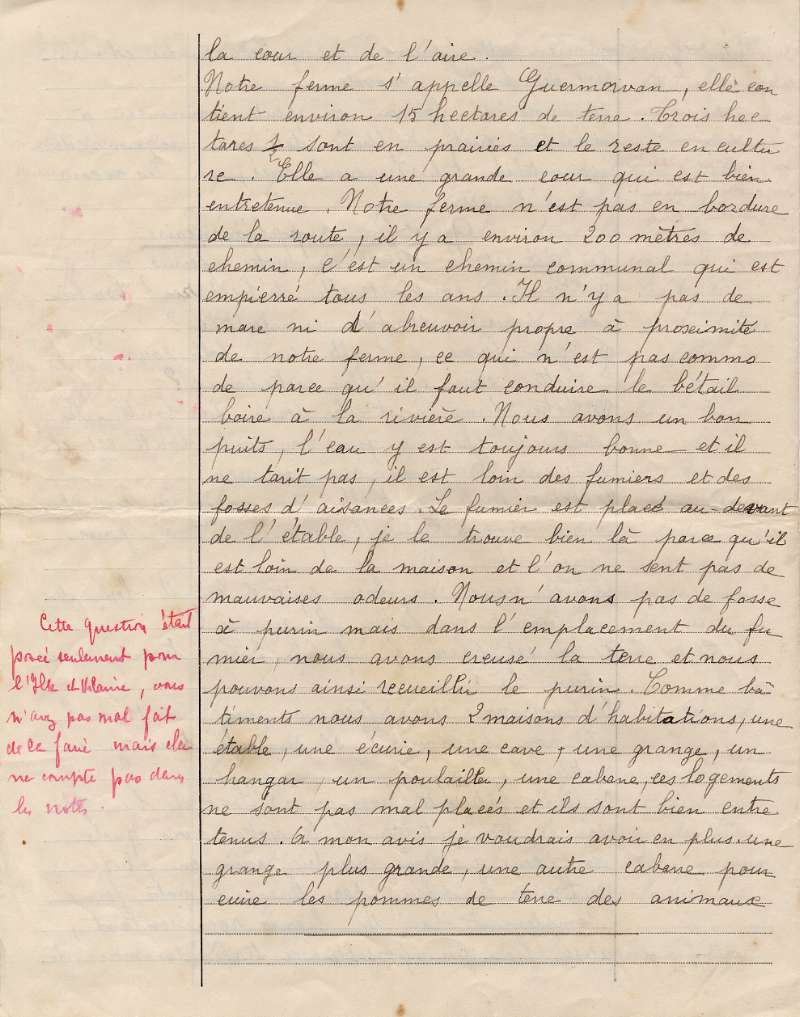 la cour et de l'aire.
Notre ferme s'appelle Guermorvan, elle con
tient environ 15 hectares de terre. Trois hec
tares 1/2 sont en prairies et le reste en cultu
re. Elle a une grande cour qui est bien
entretenue. Notre ferme n'est pas en bordure
de la route, il y a environ 200 mètres de
chemin, c'est un chemin communal qui est
empierré tous les ans. Il n'y a pas de
mare ni d'abreuvoir propre à proximité
de notre ferme, ce qui n'est pas commo
de parce qu'il faut conduire le bétail
boire à la rivière. Nous avons un bon
puits, l'eau y est toujours bonne et il
ne tarit pas, il est loin des fumiers et des
fosses d'aisances. Le fumier est placé au-devant
de l'étable, je le trouve bien là parce qu'il
est loin de la maison et l'on ne sent pas de
mauvaises odeurs. Nous n'avons pas de fosse
à purin mais dans l'emplacement du fu
mier, nous avons creusé la terre et nous
pouvons ainsi recueillir le purin. Comme bâ
timents nous avons 2 maisons d'habitations, une
étable, une écurie, une cave, une grange, un
hangar, un poulailler, une cabane, ces logements
ne sont pas mal placés et ils sont bien entre
tenus. A mon avis je voudrais avoir en plus une
grange plus grande, une autre cabane pour
cuire les pommes de terre des animaux
Cette question étant
posée seulement pour
l'Ille et Vilaine, vous
n'avez pas mal fait
de la faire mais elle
ne compte pas dans
les notes.